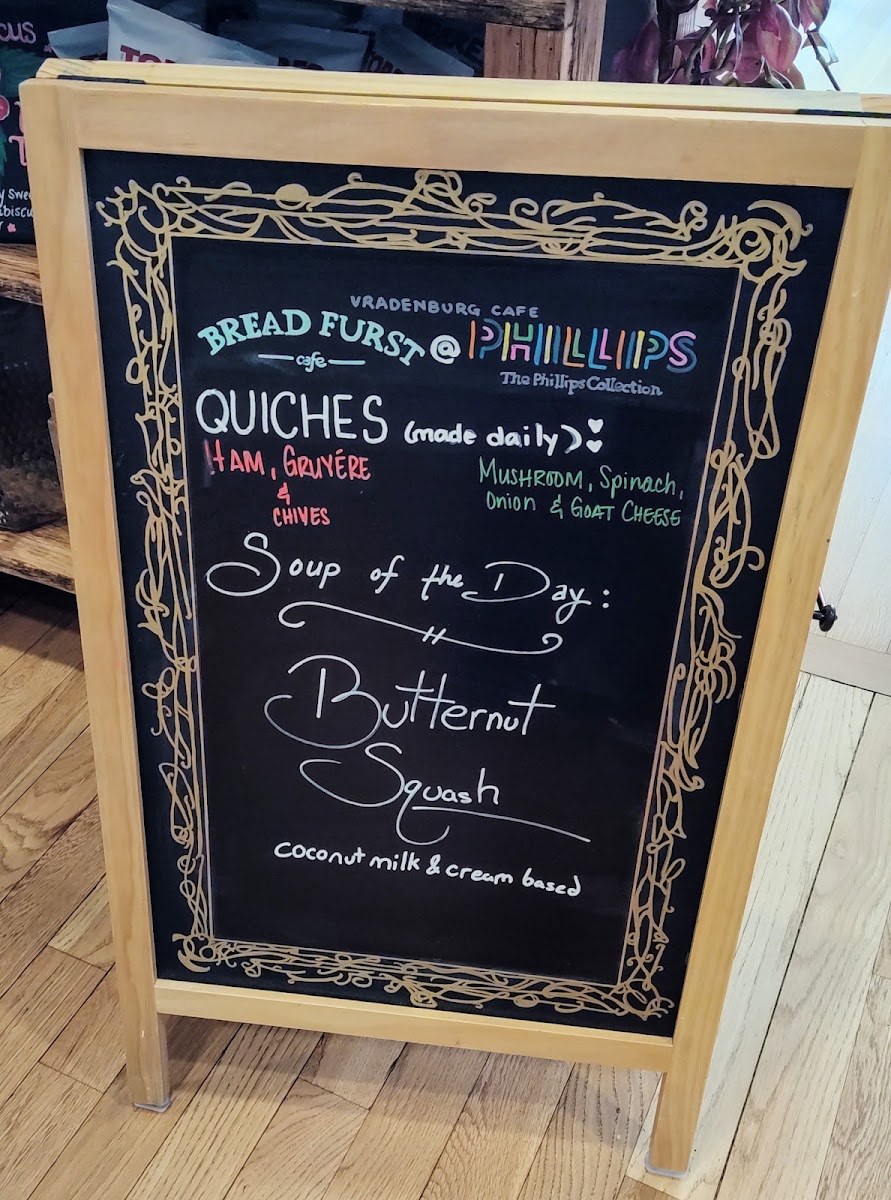 VRADENBURG CAFE
BREAD FURST @ PHILLIPS
cafe
The Phillips Collection
QUICHES (made daily)
HAM, GRUYÉRE
&
CHIVES
MUSHROOM, Spinach,
Onion & GOAT CHEESE
Soup of the Day:
Butternut
Squash
coconut milk & cream based